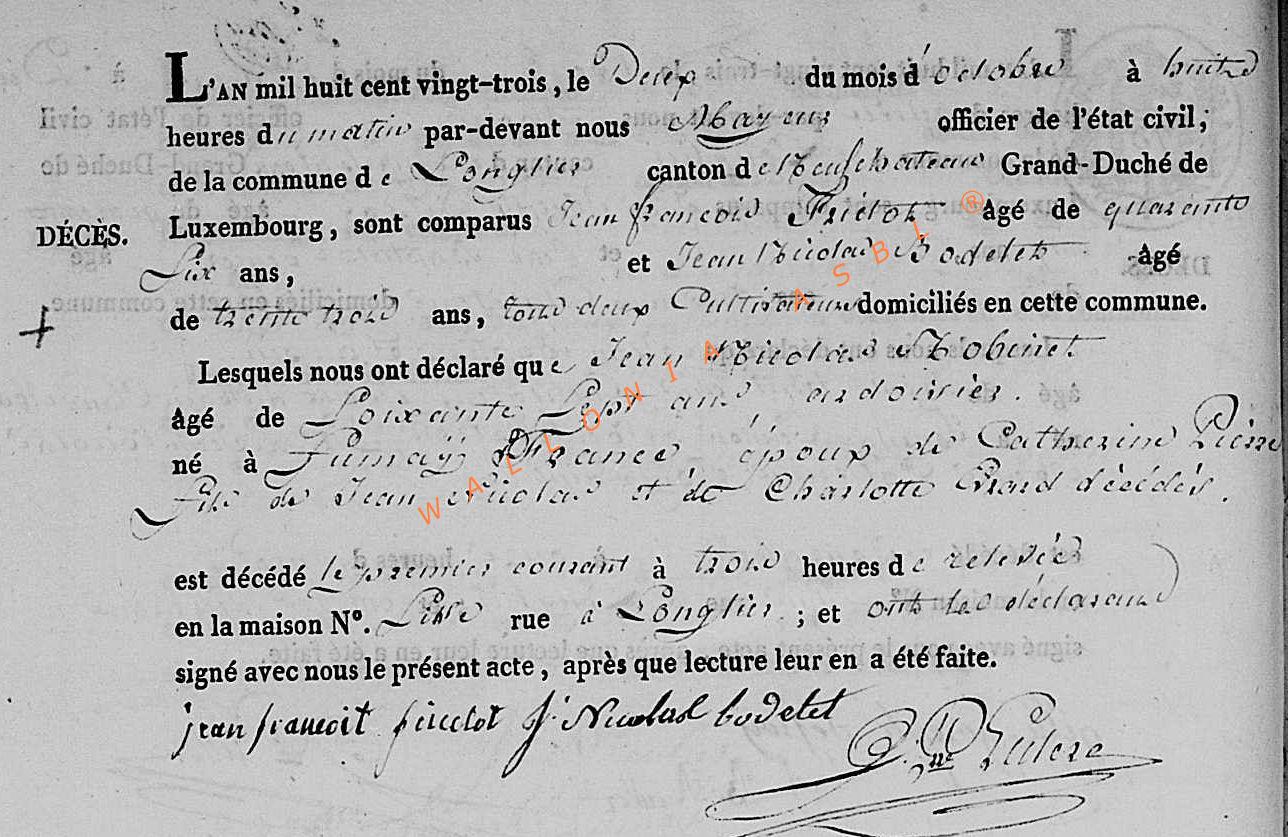 L'AN mil huit cent vingt-trois, le Deux du mois d'octobre à huit
heures du matin par-devant nous Mayeur officier de l'état civil,
de la commune de Longlier canton de Neufchateau Grand-Duché de
DÉCÈS. Luxembourg, sont comparus Jean francois âgé de quarante
Six ans, et Jean Nicolas Bodelet âgé
de trente trois ans, tous deux Cultivateurs domiciliés en cette commune.
Lesquels nous ont déclaré que Jean Nicolas Robinet
âgé de Soixante Sept ans, ardoisier.
né à Fumaÿ France, époux de Catherine Pierre
fils de Jean Nicolas et de Charlotte décédés.
est décédé le premier courant à trois heures de relevée
en la maison N°. rue à Longlier ; et ont les déclarans
signé avec nous le présent acte, après que lecture leur en a été faite.
jean francoit J. Nicolas bodelet
WALLONIA ASBL ®